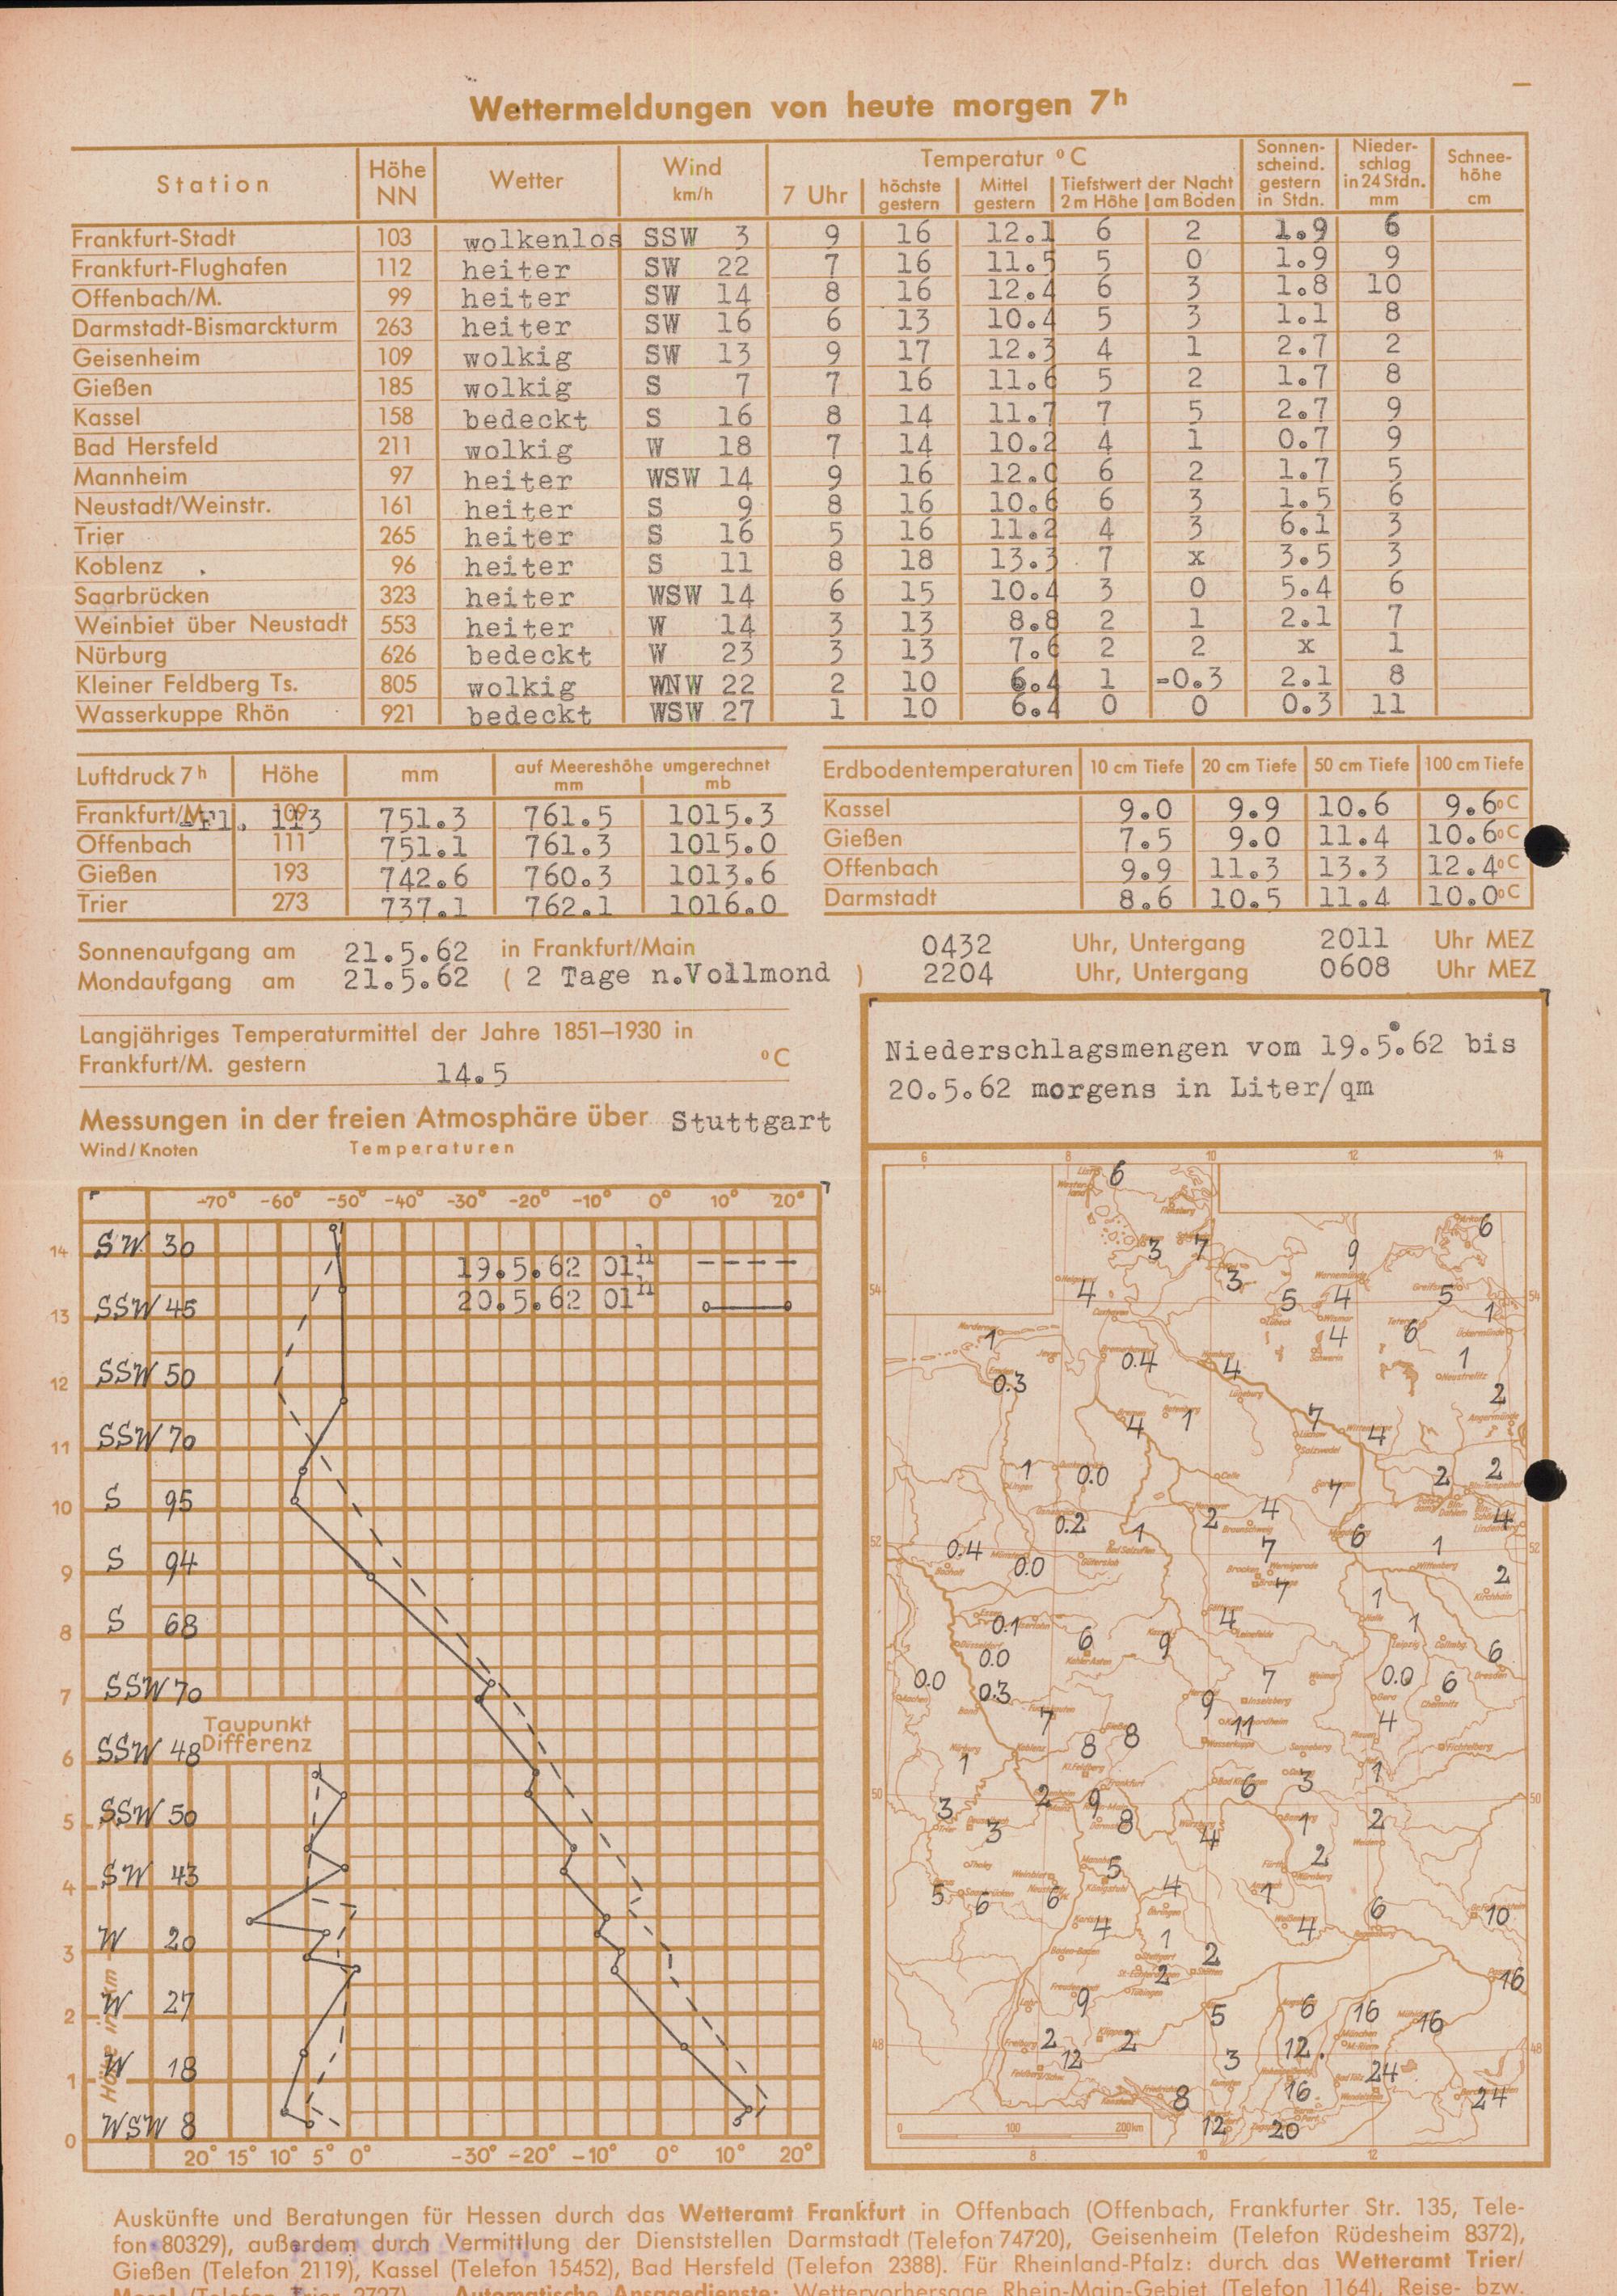 Wettermeldungen von heute morgen 7h
Station Höhe NN Wetter Wind km/h Temperatur °C Sonnen-scheind. gestern in Stdn. Nieder-schlag in 24 Stdn. mm Schnee-höhe cm
7 Uhr höchste gestern Mittel gestern Tiefstwert der Nacht 2 m Höhe am Boden
Frankfurt-Stadt 103 wolkenlos SSW 3 9 16 12.1 6 2 1.9 6
Frankfurt-Flughafen 112 heiter SW 22 7 16 11.5 5 0 1.9 9
Offenbach/M. 99 heiter SW 14 8 16 12.4 6 3 1.8 10
Darmstadt-Bismarckturm 263 heiter SW 16 6 13 10.4 5 3 1.1 8
Geisenheim 109 wolkig SW 13 9 17 12.3 4 1 2.7 2
Gießen 185 wolkig S 7 7 16 11.6 5 2 1.7 8
Kassel 158 bedeckt S 16 8 14 11.7 7 5 2.7 9
Bad Hersfeld 211 wolkig W 18 7 14 10.2 4 1 0.7 9
Mannheim 97 heiter WSW 14 9 16 12.0 6 2 1.7 5
Neustadt/Weinstr. 161 heiter S 9 8 16 10.6 6 3 1.5 6
Trier 265 heiter S 16 5 16 11.2 4 3 6.1 3
Koblenz 96 heiter S 11 8 18 13.3 7 x 3.5 3
Saarbrücken 323 heiter WSW 14 6 15 10.4 3 0 5.4 6
Weinbiet über Neustadt 553 heiter W 14 3 13 8.8 2 1 2.1 7
Nürburg 626 bedeckt W 23 3 13 7.6 2 2 x 1
Kleiner Feldberg Ts. 805 wolkig WNW 22 2 10 6.4 1 -0.3 2.1 8
Wasserkuppe Rhön 921 bedeckt WSW 27 1 10 6.4 0 0 0.3 11
Luftdruck 7h Höhe mm auf Meereshöhe umgerechnet mm mb
Frankfurt/M.-Fl. 113 751.3 761.5 1015.3
Offenbach 111 751.1 761.3 1015.0
Gießen 193 742.6 760.3 1013.6
Trier 273 737.1 762.1 1016.0
Erdbodentemperaturen 10 cm Tiefe 20 cm Tiefe 50 cm Tiefe 100 cm Tiefe
Kassel 9.0 9.9 10.6 9.6°C
Gießen 7.5 9.0 11.4 10.6°C
Offenbach 9.9 11.3 13.3 12.4°C
Darmstadt 8.6 10.5 11.4 10.0°C
Sonnenaufgang am 21.5.62 in Frankfurt/Main 0432 Uhr, Untergang 2011 Uhr MEZ
Mondaufgang am 21.5.62 ( 2 Tage n.Vollmond ) 2204 Uhr, Untergang 0608 Uhr MEZ
Langjähriges Temperaturmittel der Jahre 1851–1930 in
Frankfurt/M. gestern 14.5 °C
Messungen in der freien Atmosphäre über Stuttgart
Wind/Knoten Temperaturen
-70° -60° -50° -40° -30° -20° -10° 0° 10° 20°
19.5.62 01h
20.5.62 01h
14 SW 30
13 SSW 45
12 SSW 50
11 SSW 70
10 S 95
9 S 94
8 S 68
7 SSW 70
Taupunkt
Differenz
6 SSW 48
5 SSW 50
4 SW 43
3 W 20
2 W 27
1 W 18
0 WSW 8
Höhe in km
20° 15° 10° 5° 0° -30° -20° -10° 0° 10° 20°
Niederschlagsmengen vom 19.5.62 bis
20.5.62 morgens in Liter/qm
6 8 10 12 14
6
3 7 9 6
4 3 5 4 5 1
1 4 6 1
0.4 4
0.3 2
4 1 7 4
1 0.0 7 2 2
0.2 1 2 4 6 4
0.4 0.0 7 1
7 2
0.1 4 1 1
0.0 6 9 6
0.0 0.3 9 7 0.0 6
7 8 8 11 4
1 6 3 1
3 2 9 8 1 2
3 4 2
5 6 6 5 4 1 6 10
4 1 4
2 2 16
9 5 6 16 16
2 12 2 3 12 24
8 16 24
12 20
0 100 200km
8 10 12
Auskünfte und Beratungen für Hessen durch das Wetteramt Frankfurt in Offenbach (Offenbach, Frankfurter Str. 135, Tele-
fon 80329), außerdem durch Vermittlung der Dienststellen Darmstadt (Telefon 74720), Geisenheim (Telefon Rüdesheim 8372),
Gießen (Telefon 2119), Kassel (Telefon 15452), Bad Hersfeld (Telefon 2388). Für Rheinland-Pfalz: durch das Wetteramt Trier/
Mosel (Telefon Trier 2727). Automatische Ansagedienste: Wettervorhersage Rhein-Main-Gebiet (Telefon 1164), Reise- bzw.